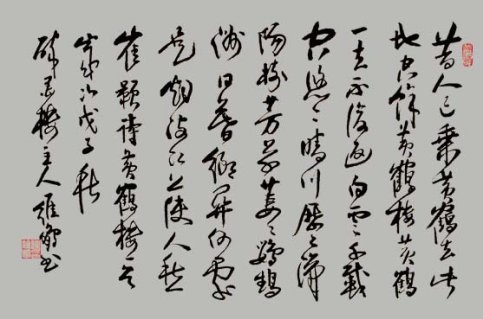 昔人已乘黄鶴去此
地空餘黄鶴樓黄鶴
一去不復返白雲千載
空悠々晴川歷々漢
陽樹芳草萋々鸚鵡
洲日暮鄉關何處
是烟波江上使人愁
崔顥詩黄鶴樓一首
歲次戊子秋
墨樓主人維書